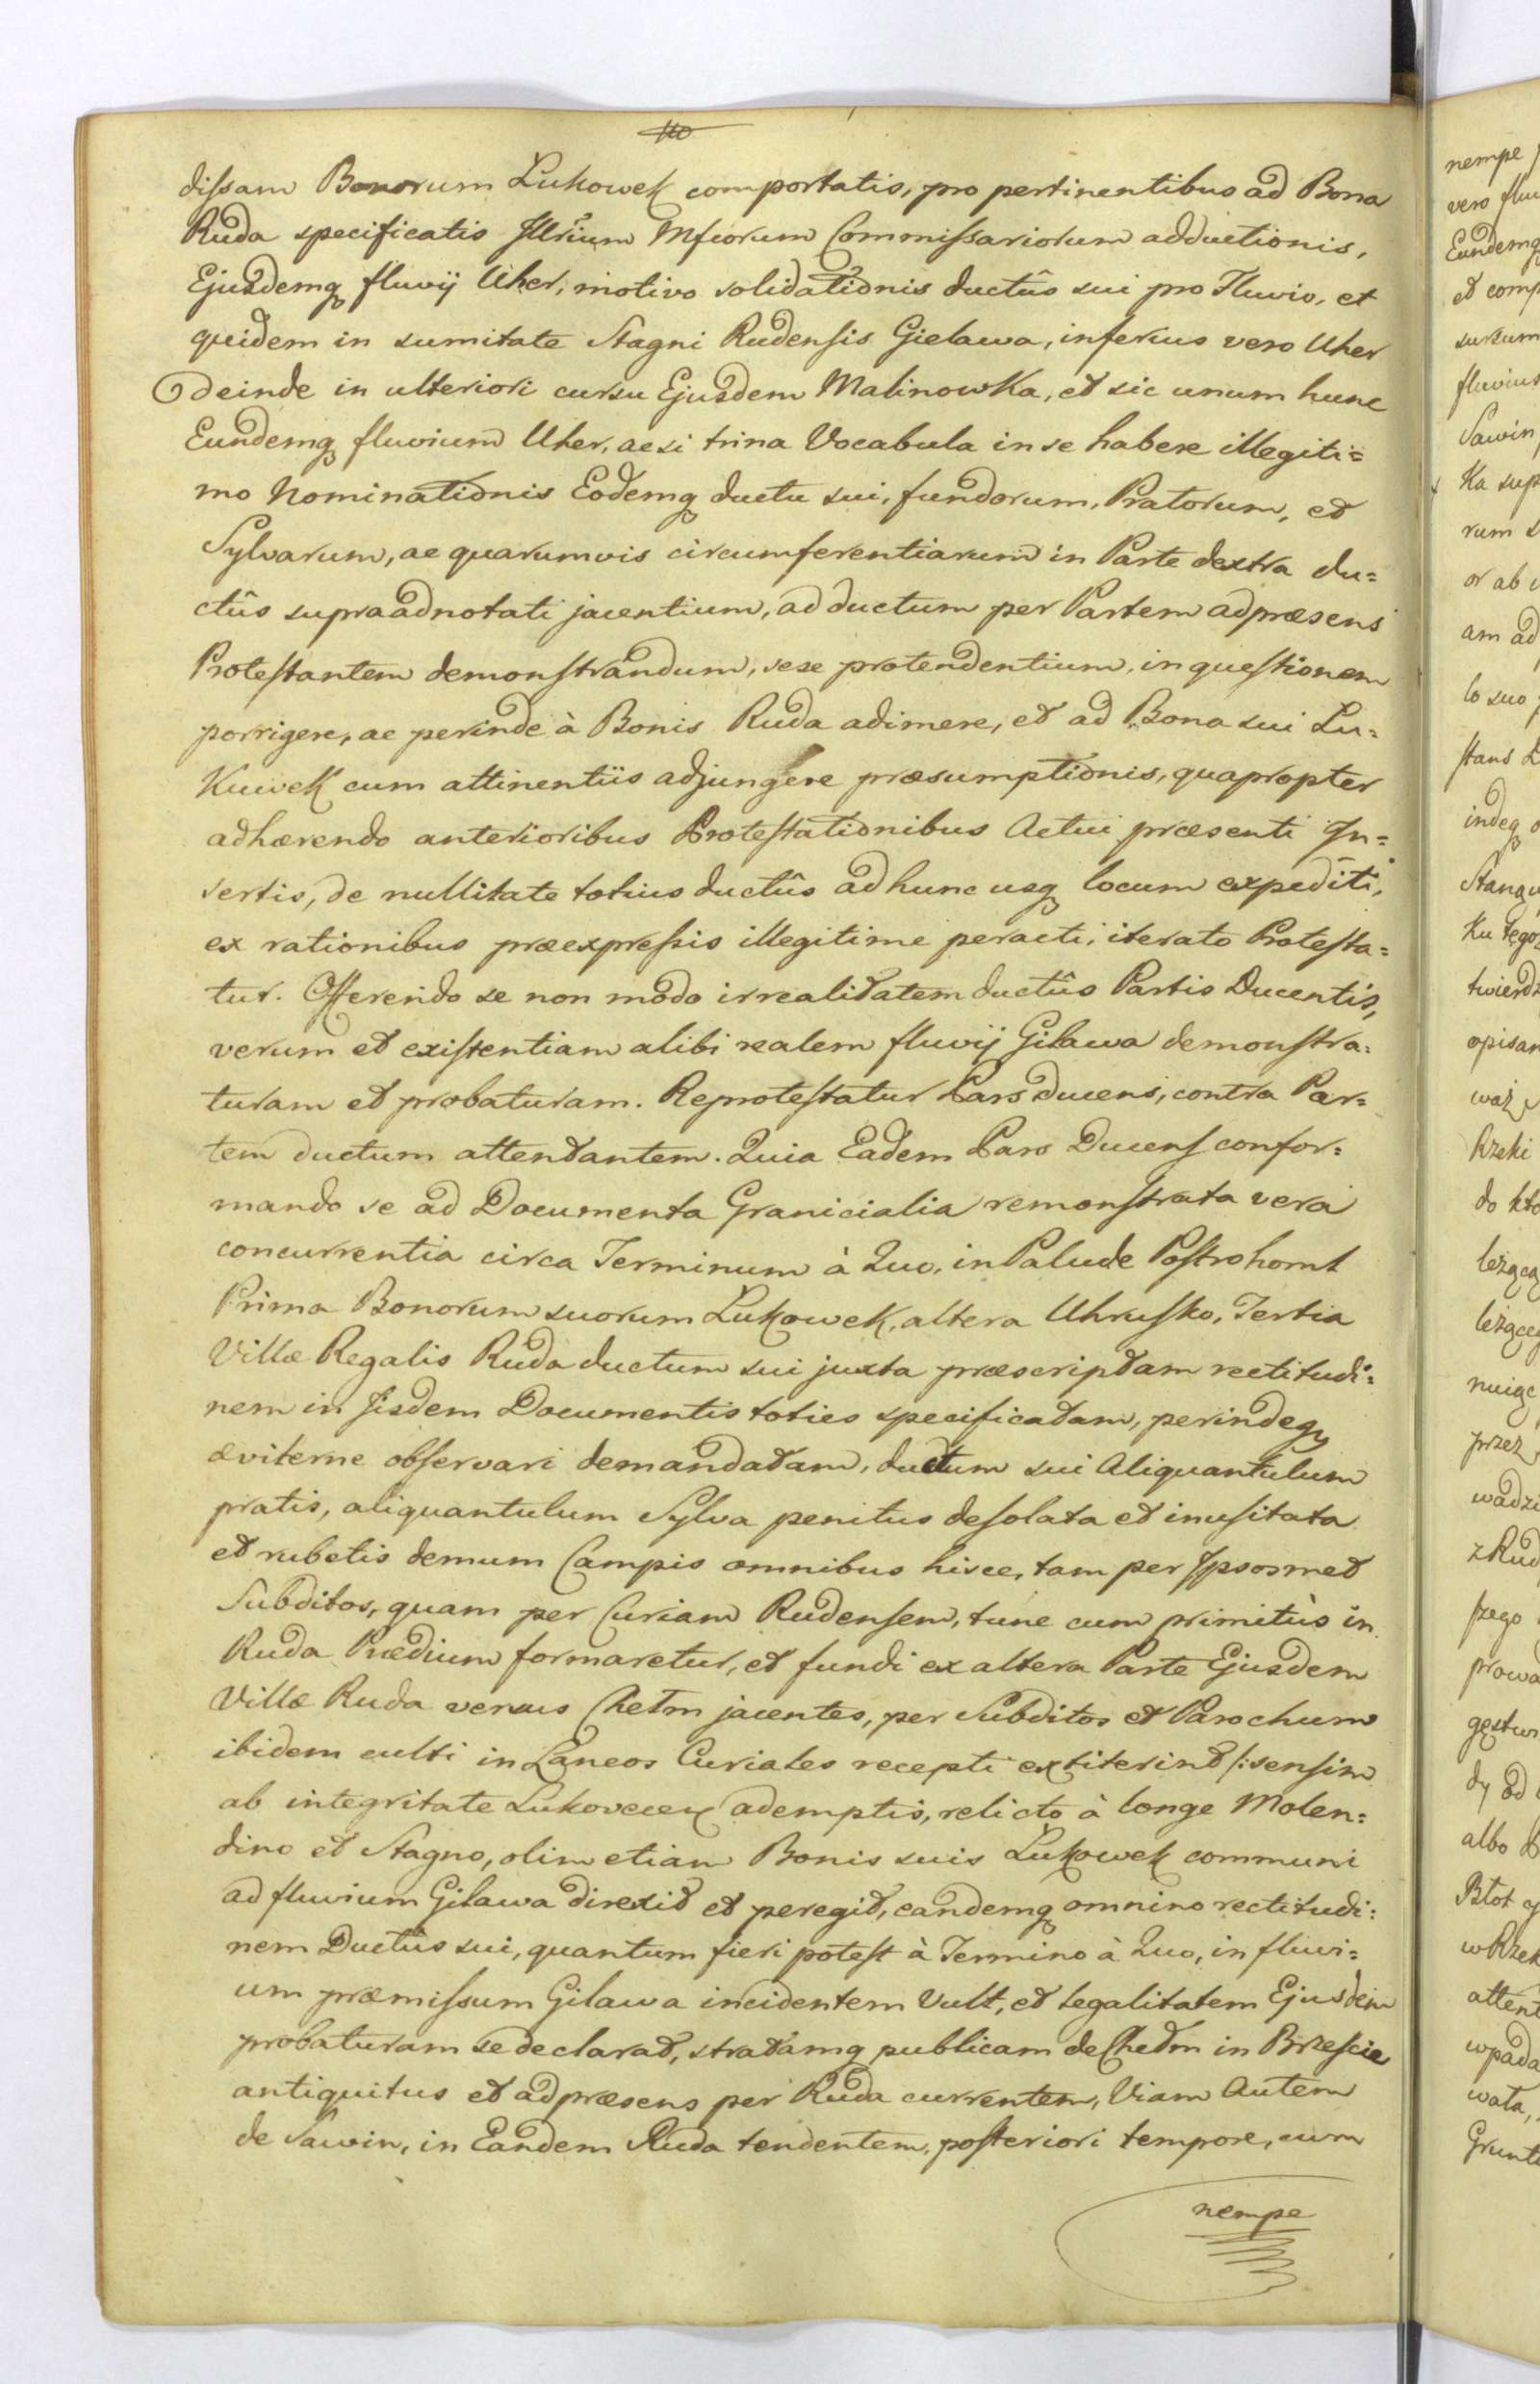 110
dissam Bonorum Lukowek comportatis, pro pertinentibus ad Bona
Ruda specificatis Illrium Mficorum Commissariorum adductionis,
Ejusdemq fluvij Uher, motivo solidationis ductûs sui pro Fluvio, et
quidem in sumitate Stagni Rudensis Gielawa, inferius vero Uher
deinde in ulteriori cursu Ejusdem Malinowka, et sic unum hunc
Eundemq fluvium Uher, acsi trina Vocabula in se habere illegiti=
mo Nominationis Eodemq ductu sui, fundorum, Pratorum, et
Sylvarum, ac quarumvis circumferentiarum in Parte dextra du=
ctûs supraadnotati jacentium, ad ductum per Partem adpræsens
Protestantem demonstrandum, sese protendentium, in questionem
porrigere, ac perinde à Bonis Ruda adimere, et ad Bona sui Lu=
kuwek cum attinentiis adjungere præsumptionis, quapropter
adhærendo anterioribus Protestationibus Actui præsenti In=
sertis, de nullitate totius ductûs adhunc usq locum expediti,
ex rationibus præexpressis illegitime peracti, iterato Protesta=
tur. Offerendo se non modo irrealitatem ductûs Partis Ducentis,
verum et existentiam alibi realem fluvij Gilawa demonstra=
turam et probaturam. Reprotestatur Pars ducens, contra Par=
tem ductum attentantem. Quia Eadem Pars Ducens confor=
mando se ad Documenta Granicialia remonstrata vera
concurrentia circa Terminum à Quo, in Palude Postrohomt
Prima Bonorum suorum Lukowek, altera Uhrusko, Tertia
Villæ Regalis Ruda ductum sui juxta præscriptam rectitudi=
nem in Iisdem Documentis toties specificatam, perindeq
æviterne observari demandatam, ductum sui Aliquantulum
pratis, aliquantulum Sylva penitus desolata et inusitata
et rubetis demum Campis omnibus hisce, tam per Ipsosmet
Subditos, quam per Curiam Rudensem, tunc cum primitùs in
Ruda Prædium formaretur, et fundi ex altera Parte Ejusdem
Villæ Ruda versus Chełm jacentes, per Subditos et Parochum
ibidem culti in Laneos Curiales recepti extiterint /: sensim
ab integritate adempti, relicto à longe Molen=
dino et Stagno, olim etiam Bonis suis Lukowek communi
ad fluvium Gilawa direxit et peregit, eandemq omnino rectitudi=
nem Ductûs sui, quantum fieri potest à Termino à Quo, in fluvi=
um præmissum Gilawa incidentem Vult, et legalitatem Ejusdem
probaturam se declarat, stratamq publicam de Chełm in Brzescie
antiquitus et adpræsens per Ruda currentem, Viam Autem
de Sawin, in Eandem Ruda tendentem, posteriori tempore, cum
nempe
nempe
vero
Eundemq
et
sursum
Sawin
ka
rum
or ab
am ad
lo suo
stans
indeq
twierdz
Rzeki
do
leżącą
przez
wadzi
z Rud
prowa
albo
Błot
w Rzek
attent
wpada
Grunt